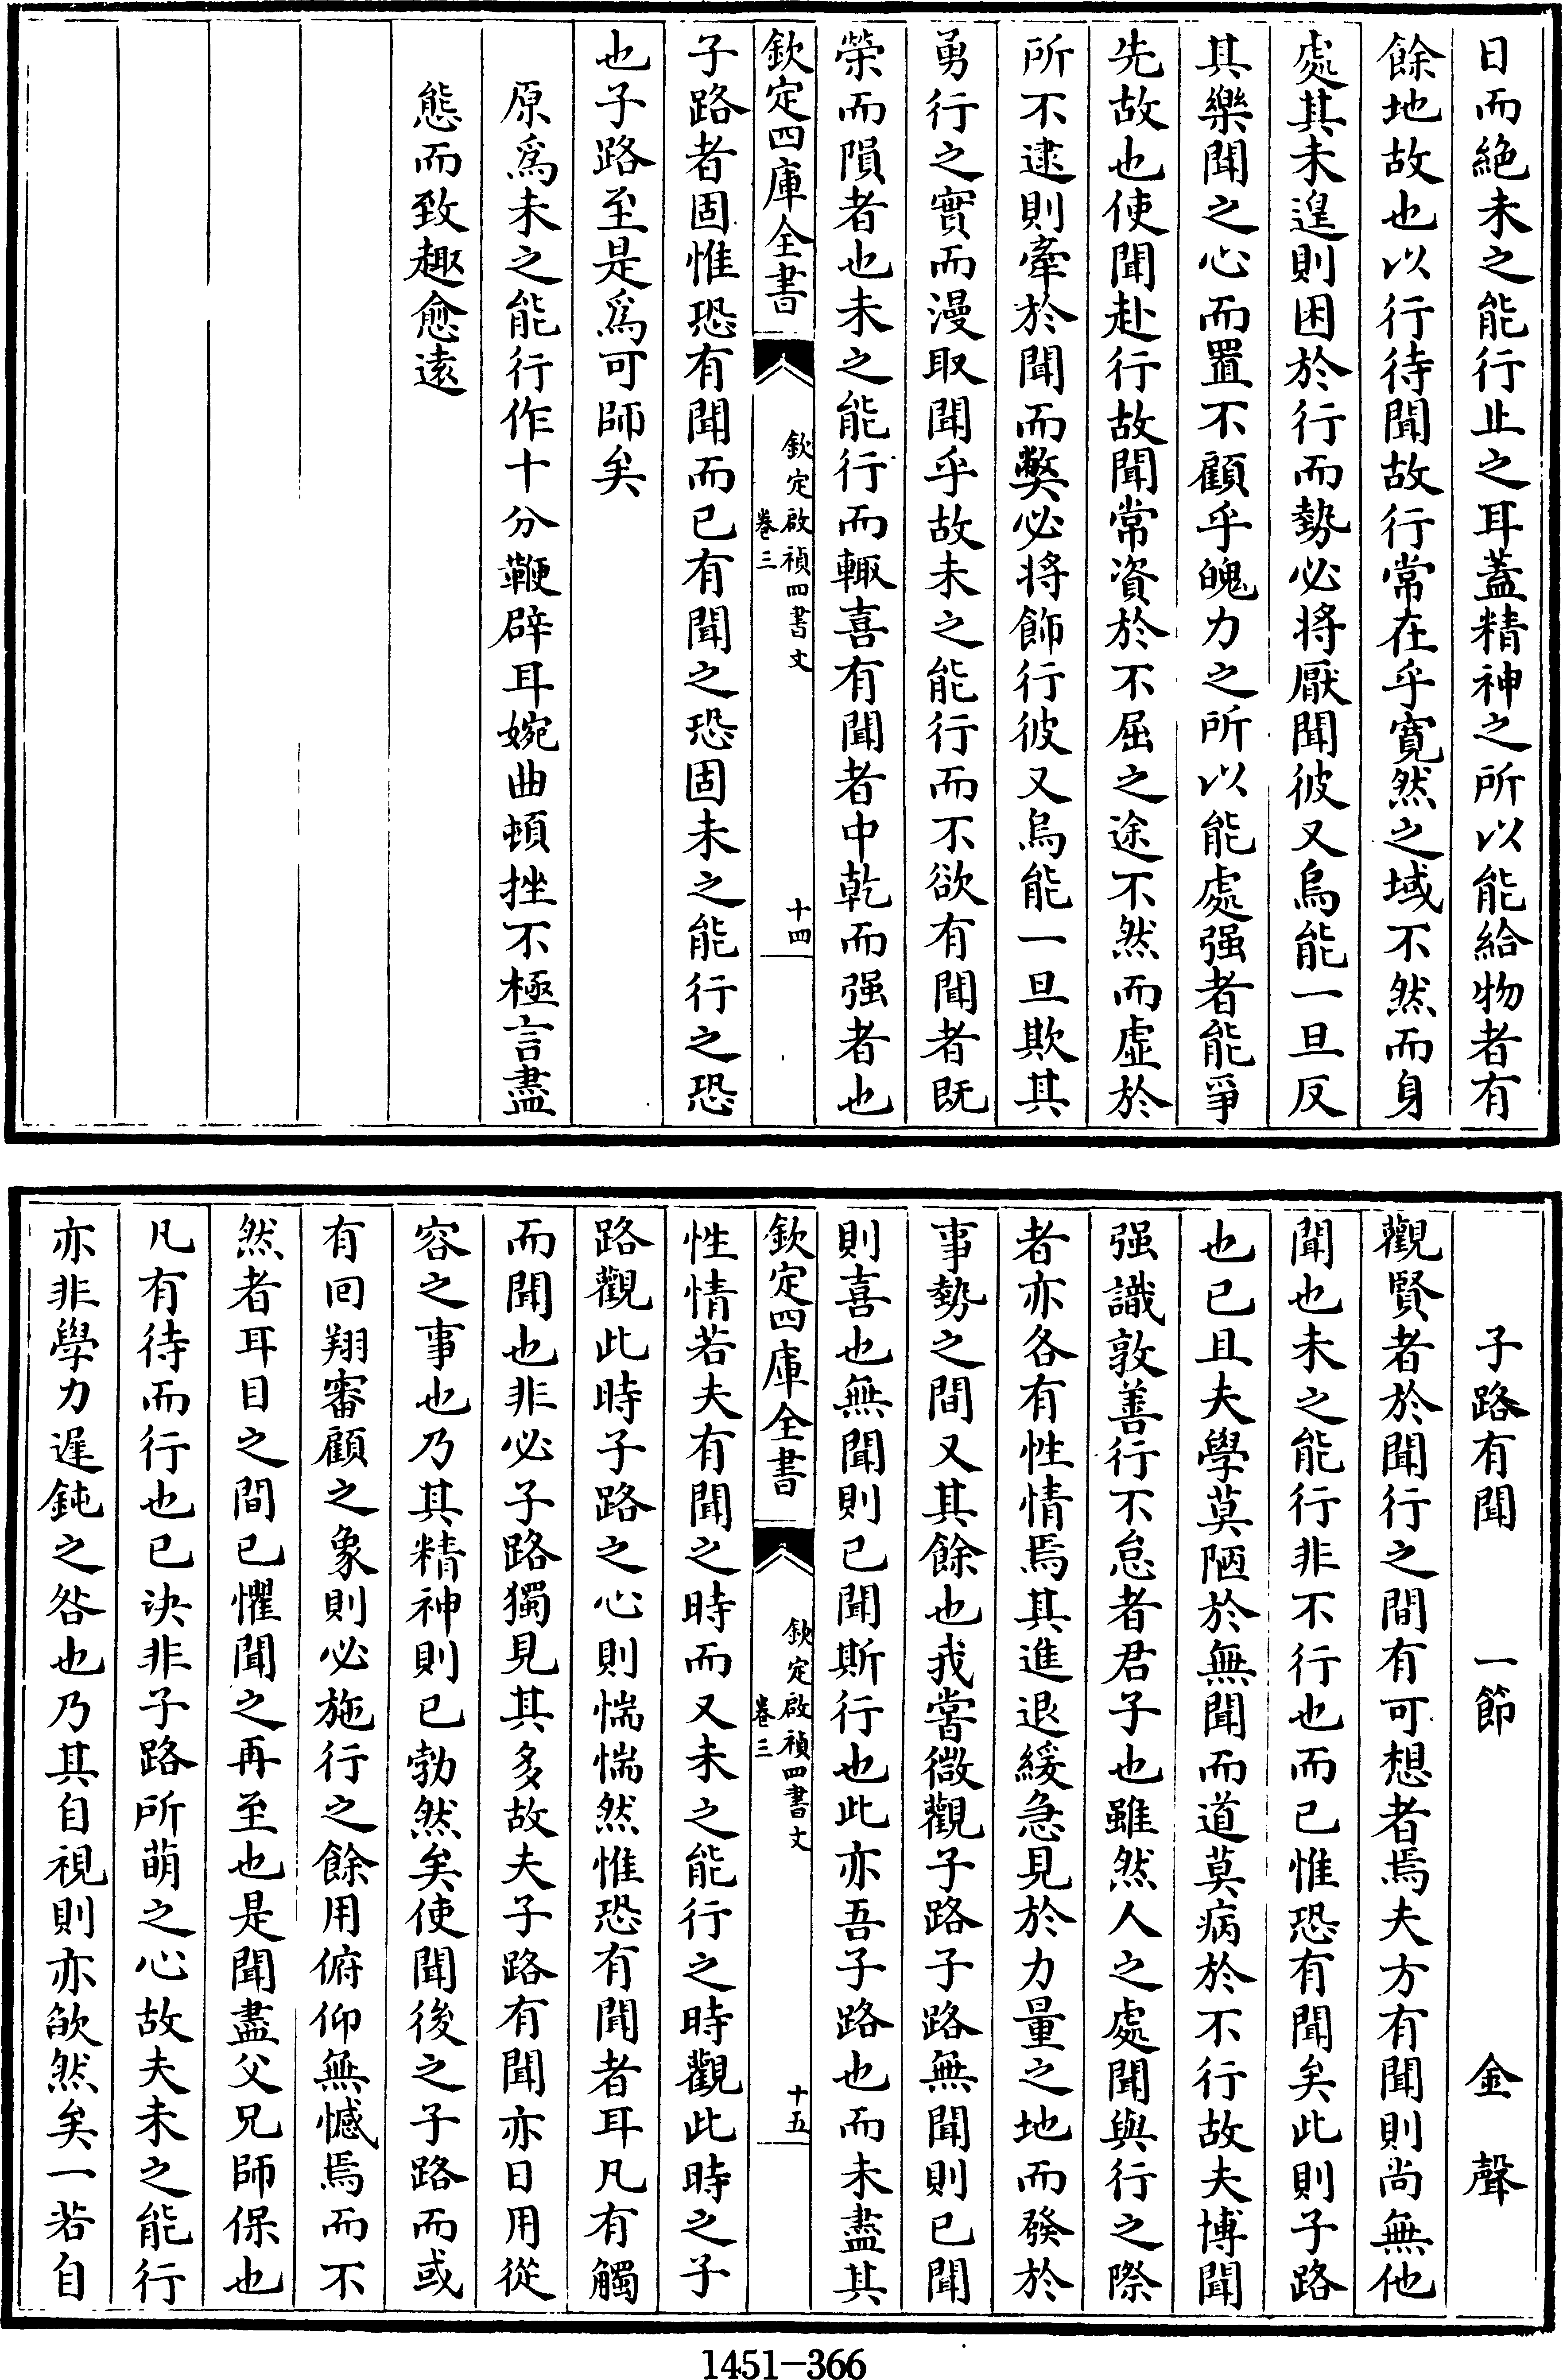 日而絶未之能行止之耳蓋精神之所以能給物者有
餘地故也以行待聞故行常在乎寛然之域不然而身
處其未遑則困於行而勢必将厭聞彼又烏能一旦反
其樂聞之心而置不顧乎魄力之所以能處强者能爭
先故也使聞赴行故聞常資於不屈之途不然而虚於
所不逮則牽於聞而弊必将飾行彼又烏能一旦欺其
勇行之實而漫取聞乎故未之能行而不欲有聞者既
榮而隕者也未之能行而輙喜有聞者中乾而强者也
欽定四庫全書
欽定啟禎四書文
卷三
十四
子路者固惟恐有聞而已有聞之恐固未之能行之恐
也子路至是為可師矣
原爲未之能行作十分鞭辟耳婉曲頓挫不極言盡
態而致趣愈遠
子路有聞 一節 金聲
觀賢者於聞行之間有可想者焉夫方有聞則尚無他
聞也未之能行非不行也而已惟恐有聞矣此則子路
也已且夫學莫陋於無聞而道莫病於不行故夫博聞
强識敦善行不怠者君子也雖然人之處聞與行之際
者亦各有性情焉其進退緩急見於力量之地而發於
事勢之間又其餘也我嘗微觀子路子路無聞則已聞
則喜也無聞則已聞斯行也此亦吾子路也而未盡其
欽定四庫全書
欽定啟禎四書文
卷三
十五
性情若夫有聞之時而又未之能行之時觀此時之子
路觀此時子路之心則惴惴然惟恐有聞者耳凡有觸
而聞也非必子路獨見其多故夫子路有聞亦日用從
容之事也乃其精神則已勃然矣使聞後之子路而或
有回翔審顧之象則必施行之餘用俯仰無憾焉而不
然者耳目之間已懼聞之再至也是聞盡父兄師保也
凡有待而行也已决非子路所萌之心故夫未之能行
亦非學力遲鈍之咎也乃其自視則亦欿然矣一若自
1451-366